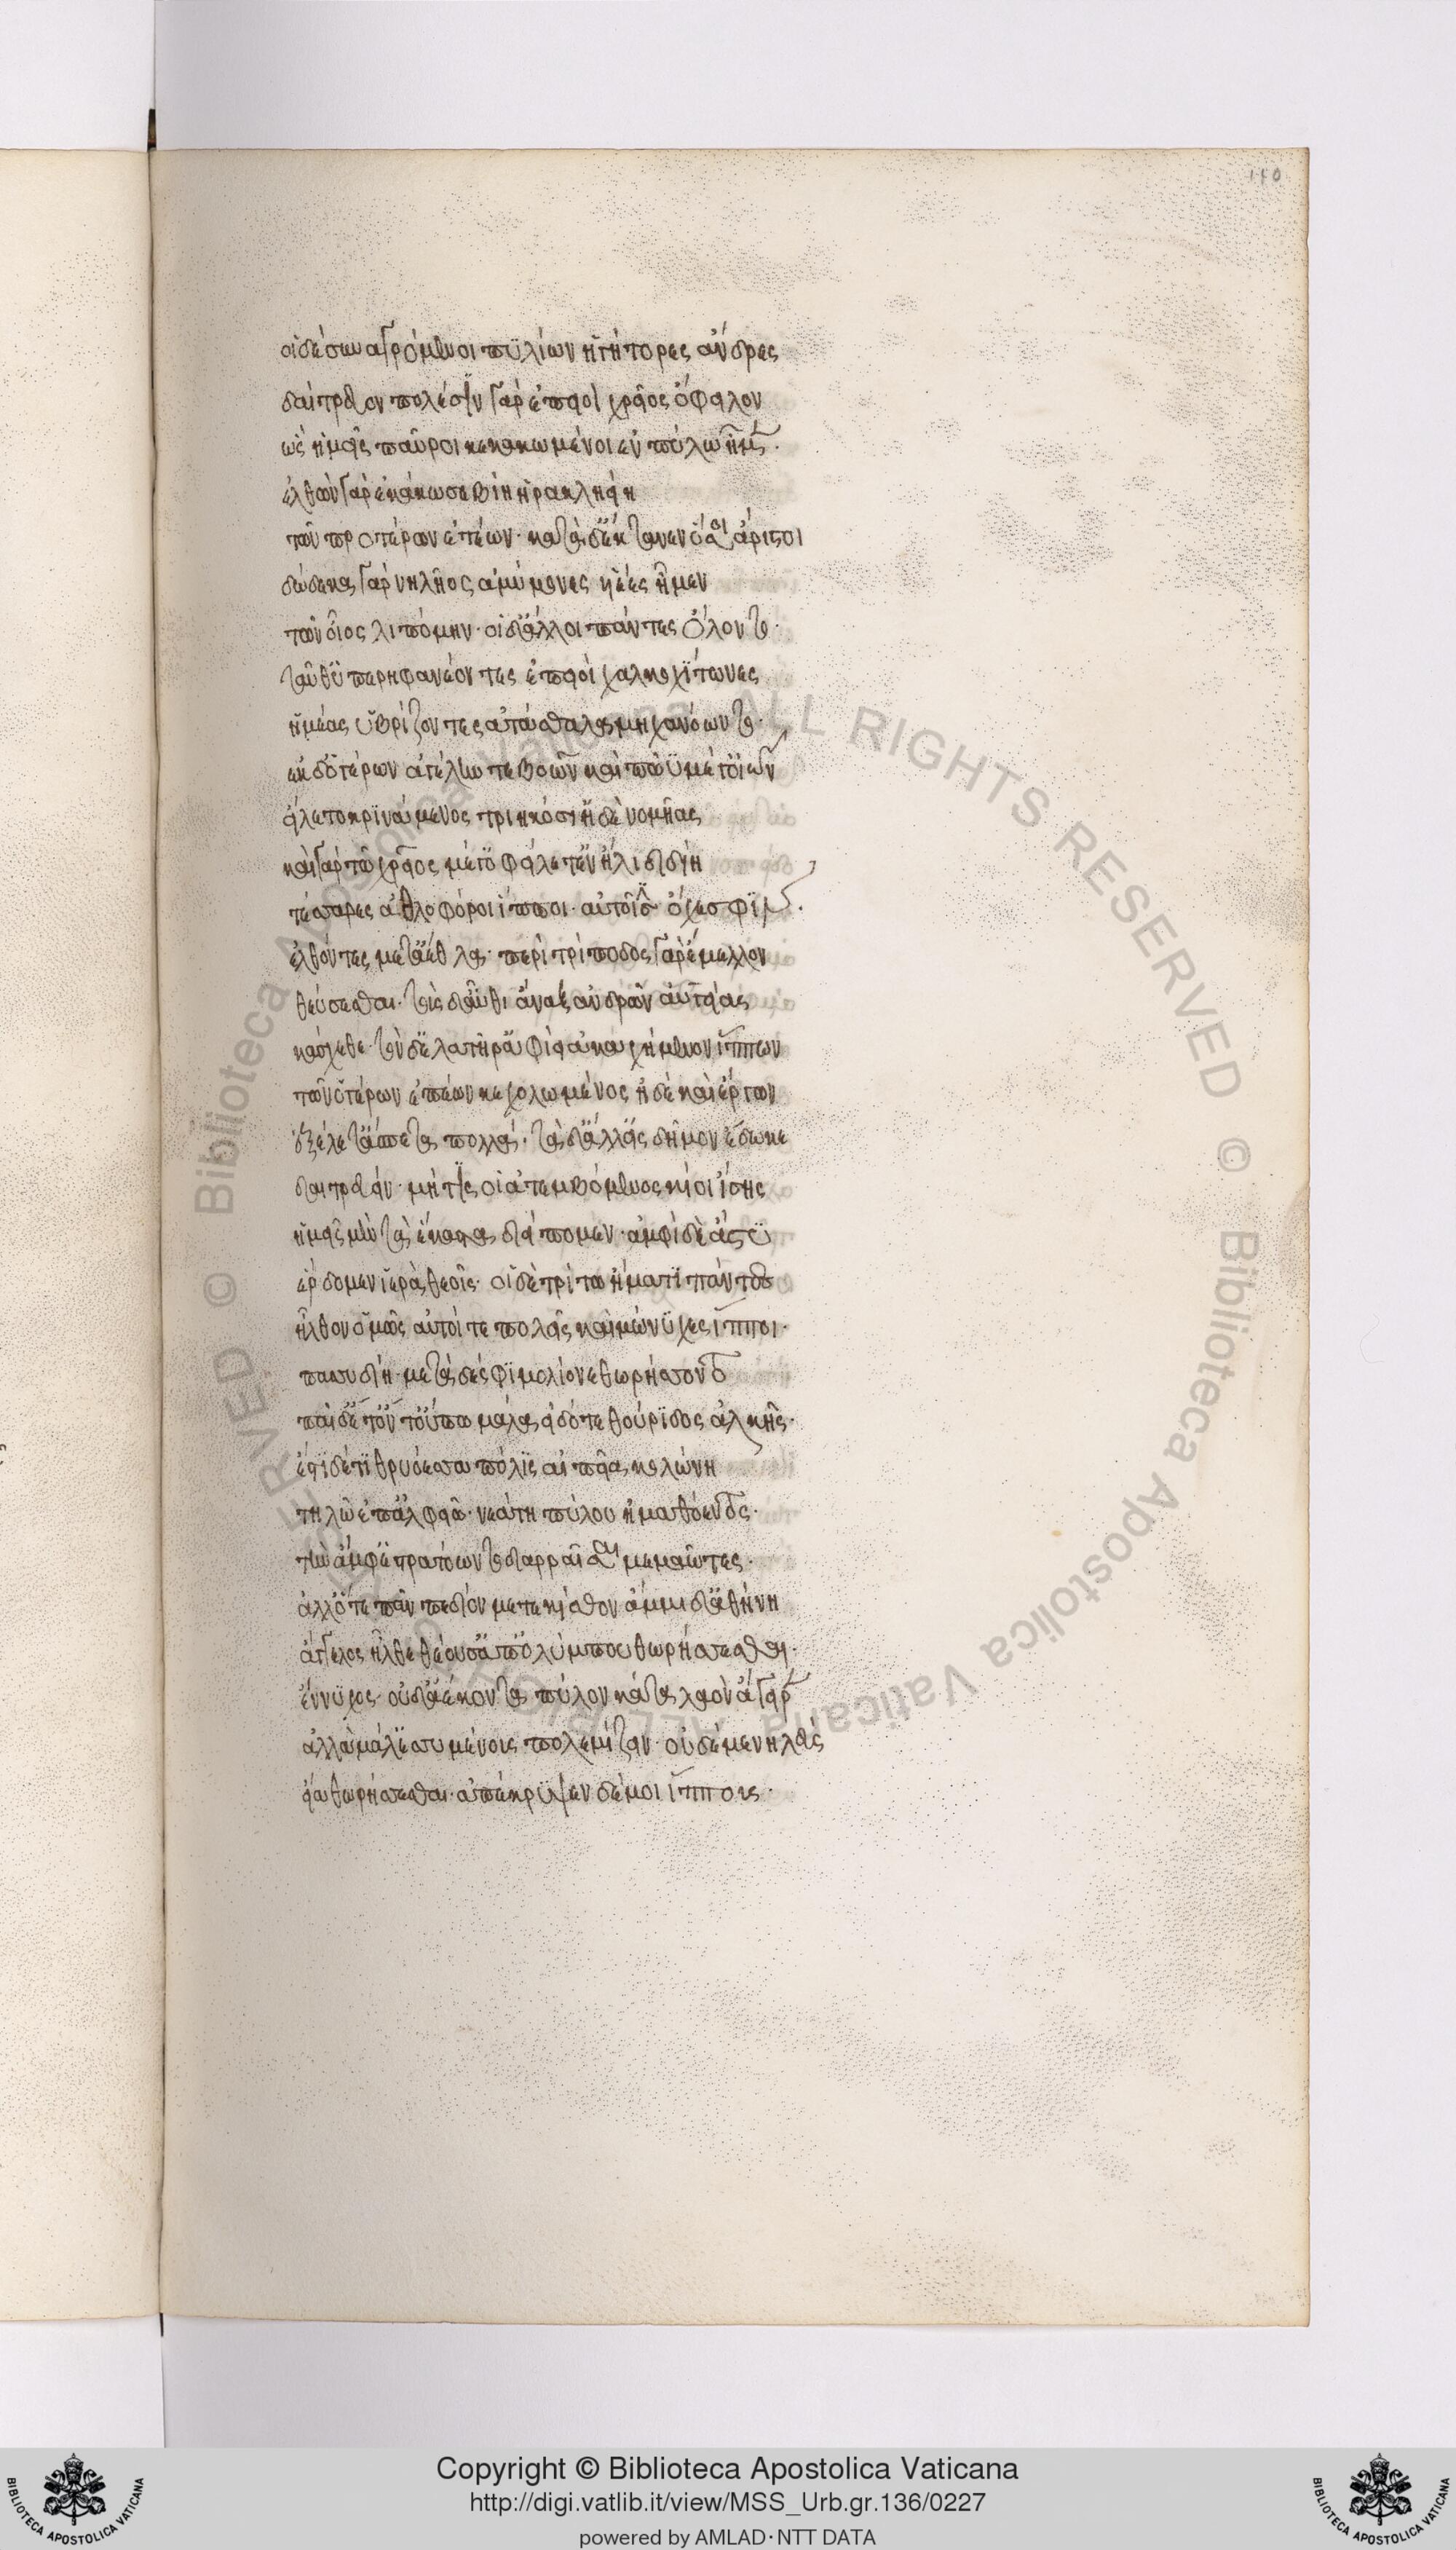 110
οἱ δὲ συναγρόμενοι πυλίων ἡγήτορες ἄνδρες
δαίτρευον πολέσιν γὰρ ἐπειοὶ χρεῖος ὄφειλον
ὡς ἡμεῖς παῦροι κεκακωμένοι ἐν πύλῳ ἦμεν.
ἐλθὼν γὰρ ἐκάκωσε βίη ἡρακληείη
τῶν προτέρων ἐτέων· κατὰ δ' ἔκταθεν ὅσσοι ἄριστοι
δώδεκα γὰρ νηλῆος ἀμύμονες υἱέες ἦμεν
τῶν οἶος λιπόμην· οἱ δ' ἄλλοι πάντες ὄλοντο·
ταῦθ' ὑπερηφανέοντες ἐπειοὶ χαλκοχίτωνες
ἡμέας ὑβρίζοντες ἀτάσθαλα μηχανόωντο·
ἐκ δ' ὁ γέρων ἀγέλην τε βοῶν καὶ πῶϋ μέγ' οἰῶν
εἵλετο κρινάμενος τριηκόσι' ἠδὲ νομῆας
καὶ γὰρ τῷ χρεῖος μέγ' ὀφείλετ' ἐν ἤλιδι δίη
τέσσαρες ἀθλοφόροι ἵπποι· αὐτοῖσιν ὄχεσφιν.
ἐλθόντες μετ' ἄεθλα· περὶ τρίποδος γὰρ ἔμελλον
θεύσεσθαι· τοὺς δ' αὖθι ἄναξ ἀνδρῶν αὐγείας
κάσχεθε· τὸν δ' ἐλατῆρ' ἀφίει ἀκαχήμενον ἵππων
τῶν ὁ γέρων ἐπέων κεχολωμένος ἠδὲ καὶ ἔργων
ἐξέλετ' ἄσπετα πολλά· τὰ δ' ἄλλ' ἐς δῆμον ἔδωκε
δαιτρεύειν· μή τις οἱ ἀτεμβόμενος κίοι ἴσης
ἡμεῖς μὲν τὰ ἕκαστα διείπομεν· ἀμφὶ δὲ ἄστυ
ἔρδομεν ἱερὰ θεοῖς· οἱ δὲ τρίτῳ ἤματι πάντες
ἦλθον ὁμῶς αὐτοί τε πολεῖς καὶ μώνυχες ἵπποι·
πασσυδίη· μετὰ δέ σφι μολίονε θωρήσσοντο
παῖδ' ἔτ' ἐόντ' οὔπω μάλα εἰδότε θούριδος ἀλκῆς·
ἔστι δέ τις θρυόεσσα πόλις αἰπεῖα κολώνη
τηλοῦ ἐπ' ἀλφειῷ· νεάτη πύλου ἠμαθόεντος·
τὴν ἀμφεστρατόωντο διαρραῖσαι μεμαῶτες·
ἀλλ' ὅτε πᾶν πεδίον μετεκίαθον ἄμμι δ' ἀθήνη
ἄγγελος ἦλθε θέουσ' ἀπ' ὀλύμπου θωρήσσεσθαι·
ἔννυχος· οὐδ' ἀέκοντα πύλον κάτα λαὸν ἄγειρεν
ἀλλὰ μάλ' ἐσσυμένους πολεμίζειν· οὐδέ με νηλεύς
εἴα θωρήσσεσθαι· ἀπέκρυψεν δέ μοι ἵππους·